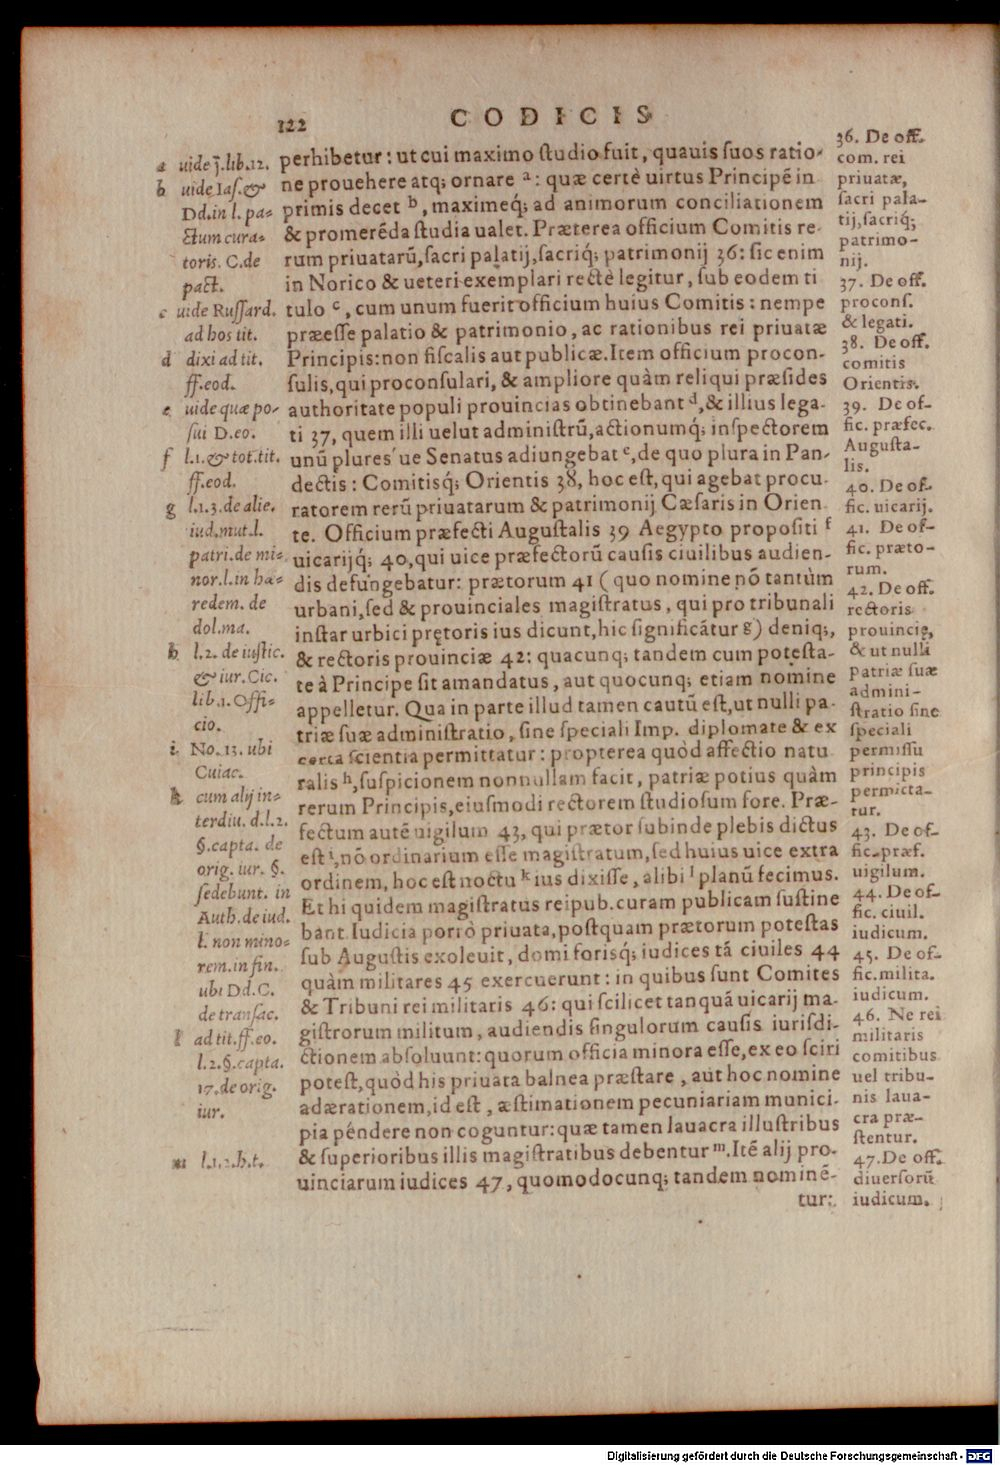 122
CODICIS
perhibetur: ut cui maximo studio fuit, quauis suos ratio-
ne prouehere atq; ornare ª: quæ certè uirtus Principẽ in
primis decet ᵇ, maximeq́; ad animorum conciliationem
& promerẽda studia ualet. Præterea officium Comitis re
rum priuatarũ, sacri palatij, sacriq́; patrimonij 36: sic enim
in Norico & ueteri exemplari rectè legitur, sub eodem ti
tulo ᶜ, cum unum fuerit officium huius Comitis: nempe
præesse palatio & patrimonio, ac rationibus rei priuatæ
Principis: non fiscalis aut publicæ. Item officium procon-
sulis, qui proconsulari, & ampliore quàm reliqui præsides
authoritate populi prouincias obtinebant ᵈ, & illius lega-
ti 37, quem illi uelut administrũ, actionumq́; inspectorem
unũ plures'ue Senatus adiungebat ᵉ, de quo plura in Pan-
dectis: Comitisq́; Orientis 38, hoc est, qui agebat procu-
ratorem rerũ priuatarum & patrimonij Cæsaris in Orien-
te. Officium præfecti Augustalis 39 Aegypto propositi ᶠ
uicarijq́; 40, qui uice præfectorũ causis ciuilibus audien-
dis defungebatur: prætorum 41 (quo nomine nõ tantùm
urbani, sed & prouinciales magistratus, qui pro tribunali
instar urbici prętoris ius dicunt, hic significãtur g) deniq;,
& rectoris prouinciæ 42: quacunq; tandem cum potesta-
te à Principe sit amandatus, aut quocunq; etiam nomine
appelletur. Qua in parte illud tamen cautũ est, ut nulli pa-
triæ suæ administratio, sine speciali Imp. diplomate & ex
certa scientia permittatur: propterea quòd affectio natu
ralis ʰ, suspicionem nonnullam facit, patriæ potius quàm
rerum Principis, eiusmodi rectorem studiosum fore. Præ-
fectum autẽ uigilum 43, qui prætor subinde plebis dictus
est ⁱ, nõ ordinarium esse magistratum, sed huius uice extra
ordinem, hoc est noctu ᵏ ius dixisse, alibi ˡ planũ fecimus.
Et hi quidem magistratus reipub. curam publicam sustine
bant. Iudicia porrò priuata, postquam prætorum potestas
sub Augustis exoleuit, domi forisq́; iudices tã ciuiles 44
quàm militares 45 exercuerunt: in quibus sunt Comites
& Tribuni rei militaris 46: qui scilicet tanquã uicarij ma-
gistrorum militum, audiendis singulorum causis iurisdi-
ctionem absoluunt: quorum officia minora esse, ex eo sciri
potest, quòd his priuata balnea præstare, aut hoc nomine
adærationem, id est, æstimationem pecuniariam munici-
pia pẽndere non coguntur: quæ tamen lauacra illustribus
& superioribus illis magistratibus debentur ᵐ. Itẽ alij pro-
uinciarum iudices 47, quomodocunq; tandem nominẽ-
tur:
a uide j. lib. 12.
b uide Ias. &
Dd. in l. pa-
ctum cura-
toris. C. de
pact.
c uide Russard.
ad hos tit.
d dixi ad tit.
ff. eod.
e uide quæ po-
sui D. eo.
f l. 1. & tot. tit.
ff. eod.
g l. 1. 3. de alie.
iud. mut. l.
patri. de mi-
nor. l. in hæ-
redem. de
dol. ma.
h l. 2. de iustic.
& iur. Cic.
lib. 1. Offi-
cio.
i No. 13. ubi
Cuiac.
k cum alij in-
terdiu. d. l. 2.
§. capta. de
orig. iur. §.
sedebunt. in
Auth. de iud.
l. non mino-
rem. in fin.
ubi Dd. C.
de transac.
l ad tit. ff. eo.
l. 2. §. capta.
17. de orig.
iur.
m l. 1. 2. h. t.
36. De off.
com. rei
priuatæ,
sacri pala-
tij, sacriq́;
patrimo-
nij.
37. De off.
procons.
& legati.
38. De off.
comitis
Orientis.
39. De of-
fic. præfec.
Augusta-
lis.
40. De of-
fic. uicarij.
41. De of-
fic. præto-
rum.
42. De off.
rectoris
prouincię,
& ut nulli
patriæ suæ
admini-
stratio sine
speciali
permissu
principis
permitta-
tur.
43. De of-
fic. præf.
uigilum.
44. De of-
fic. ciuil.
iudicum.
45. De of-
fic. milita.
iudicum.
46. Ne rei
militaris
comitibus
uel tribu-
nis laua-
cra præ-
stentur.
47. De off.
diuersorũ
iudicum.
Digitalisierung gefördert durch die Deutsche Forschungsgemeinschaft - DFG